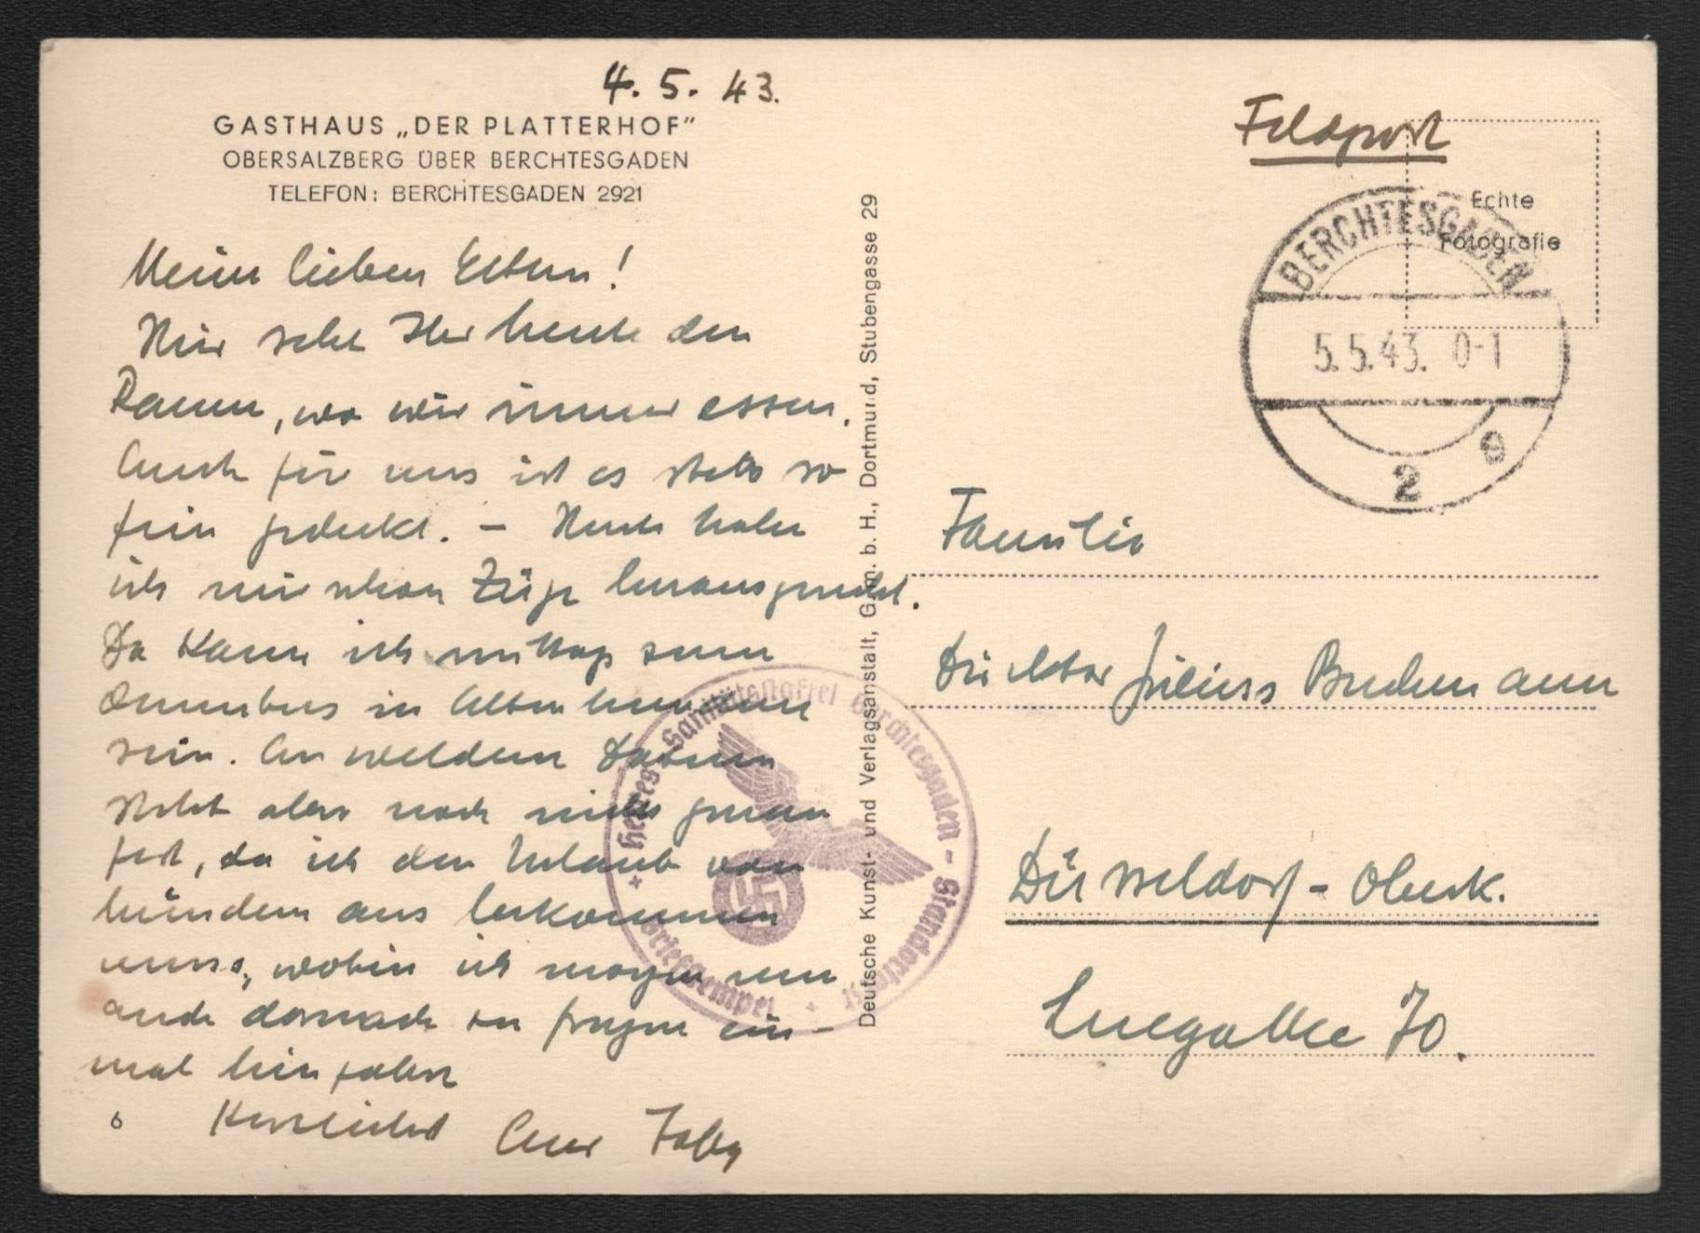 4. 5. 43.
GASTHAUS „DER PLATTERHOF"
OBERSALZBERG ÜBER BERCHTESGADEN
TELEFON: BERCHTESGADEN 2921
Meine lieben Eltern!
Hier seht Ihr heute den
Raum, wo wir immer essen.
Auch für uns ist es stets so
fein gedeckt. – Heute habe
ich mir schon Züge herausgesucht.
Da kann ich mittags zum
Omnibus in Altenhundem
sein. An welchem Datum
steht aber noch nicht genau
fest, da ich den Urlaub von
aus bekommen
muss, wohin ich morgen nun
auch darnach zu fragen ein-
mal hinfahre
Herzlichst Euer
6
Deutsche Kunst- und Verlagsanstalt, G. m. b. H., Dortmund, Stubengasse 29
Feldpost
Echte
Fotografie
BERCHTESGADEN
5.5.43. 0-1
2
Familie
Direktor Julius
Düsseldorf – Oberk.
Luegallee 70.
Heeres Sanitätsstaffel Berchtesgaden - Standort
Briefstempel